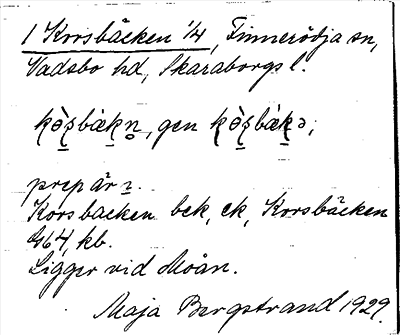 1 Korsbäcken 1/4, Finnerödja sn,
Vadsbo hd, Skaraborgs l.
kò̱ʂbæḵn̥, gen kò̱ʂbæḵə;
prep är ɪ.
Korsbäcken bek, ek, Korsbäcken
464, kb.
Ligger vid Moån.
Maja Bergstrand 1929.